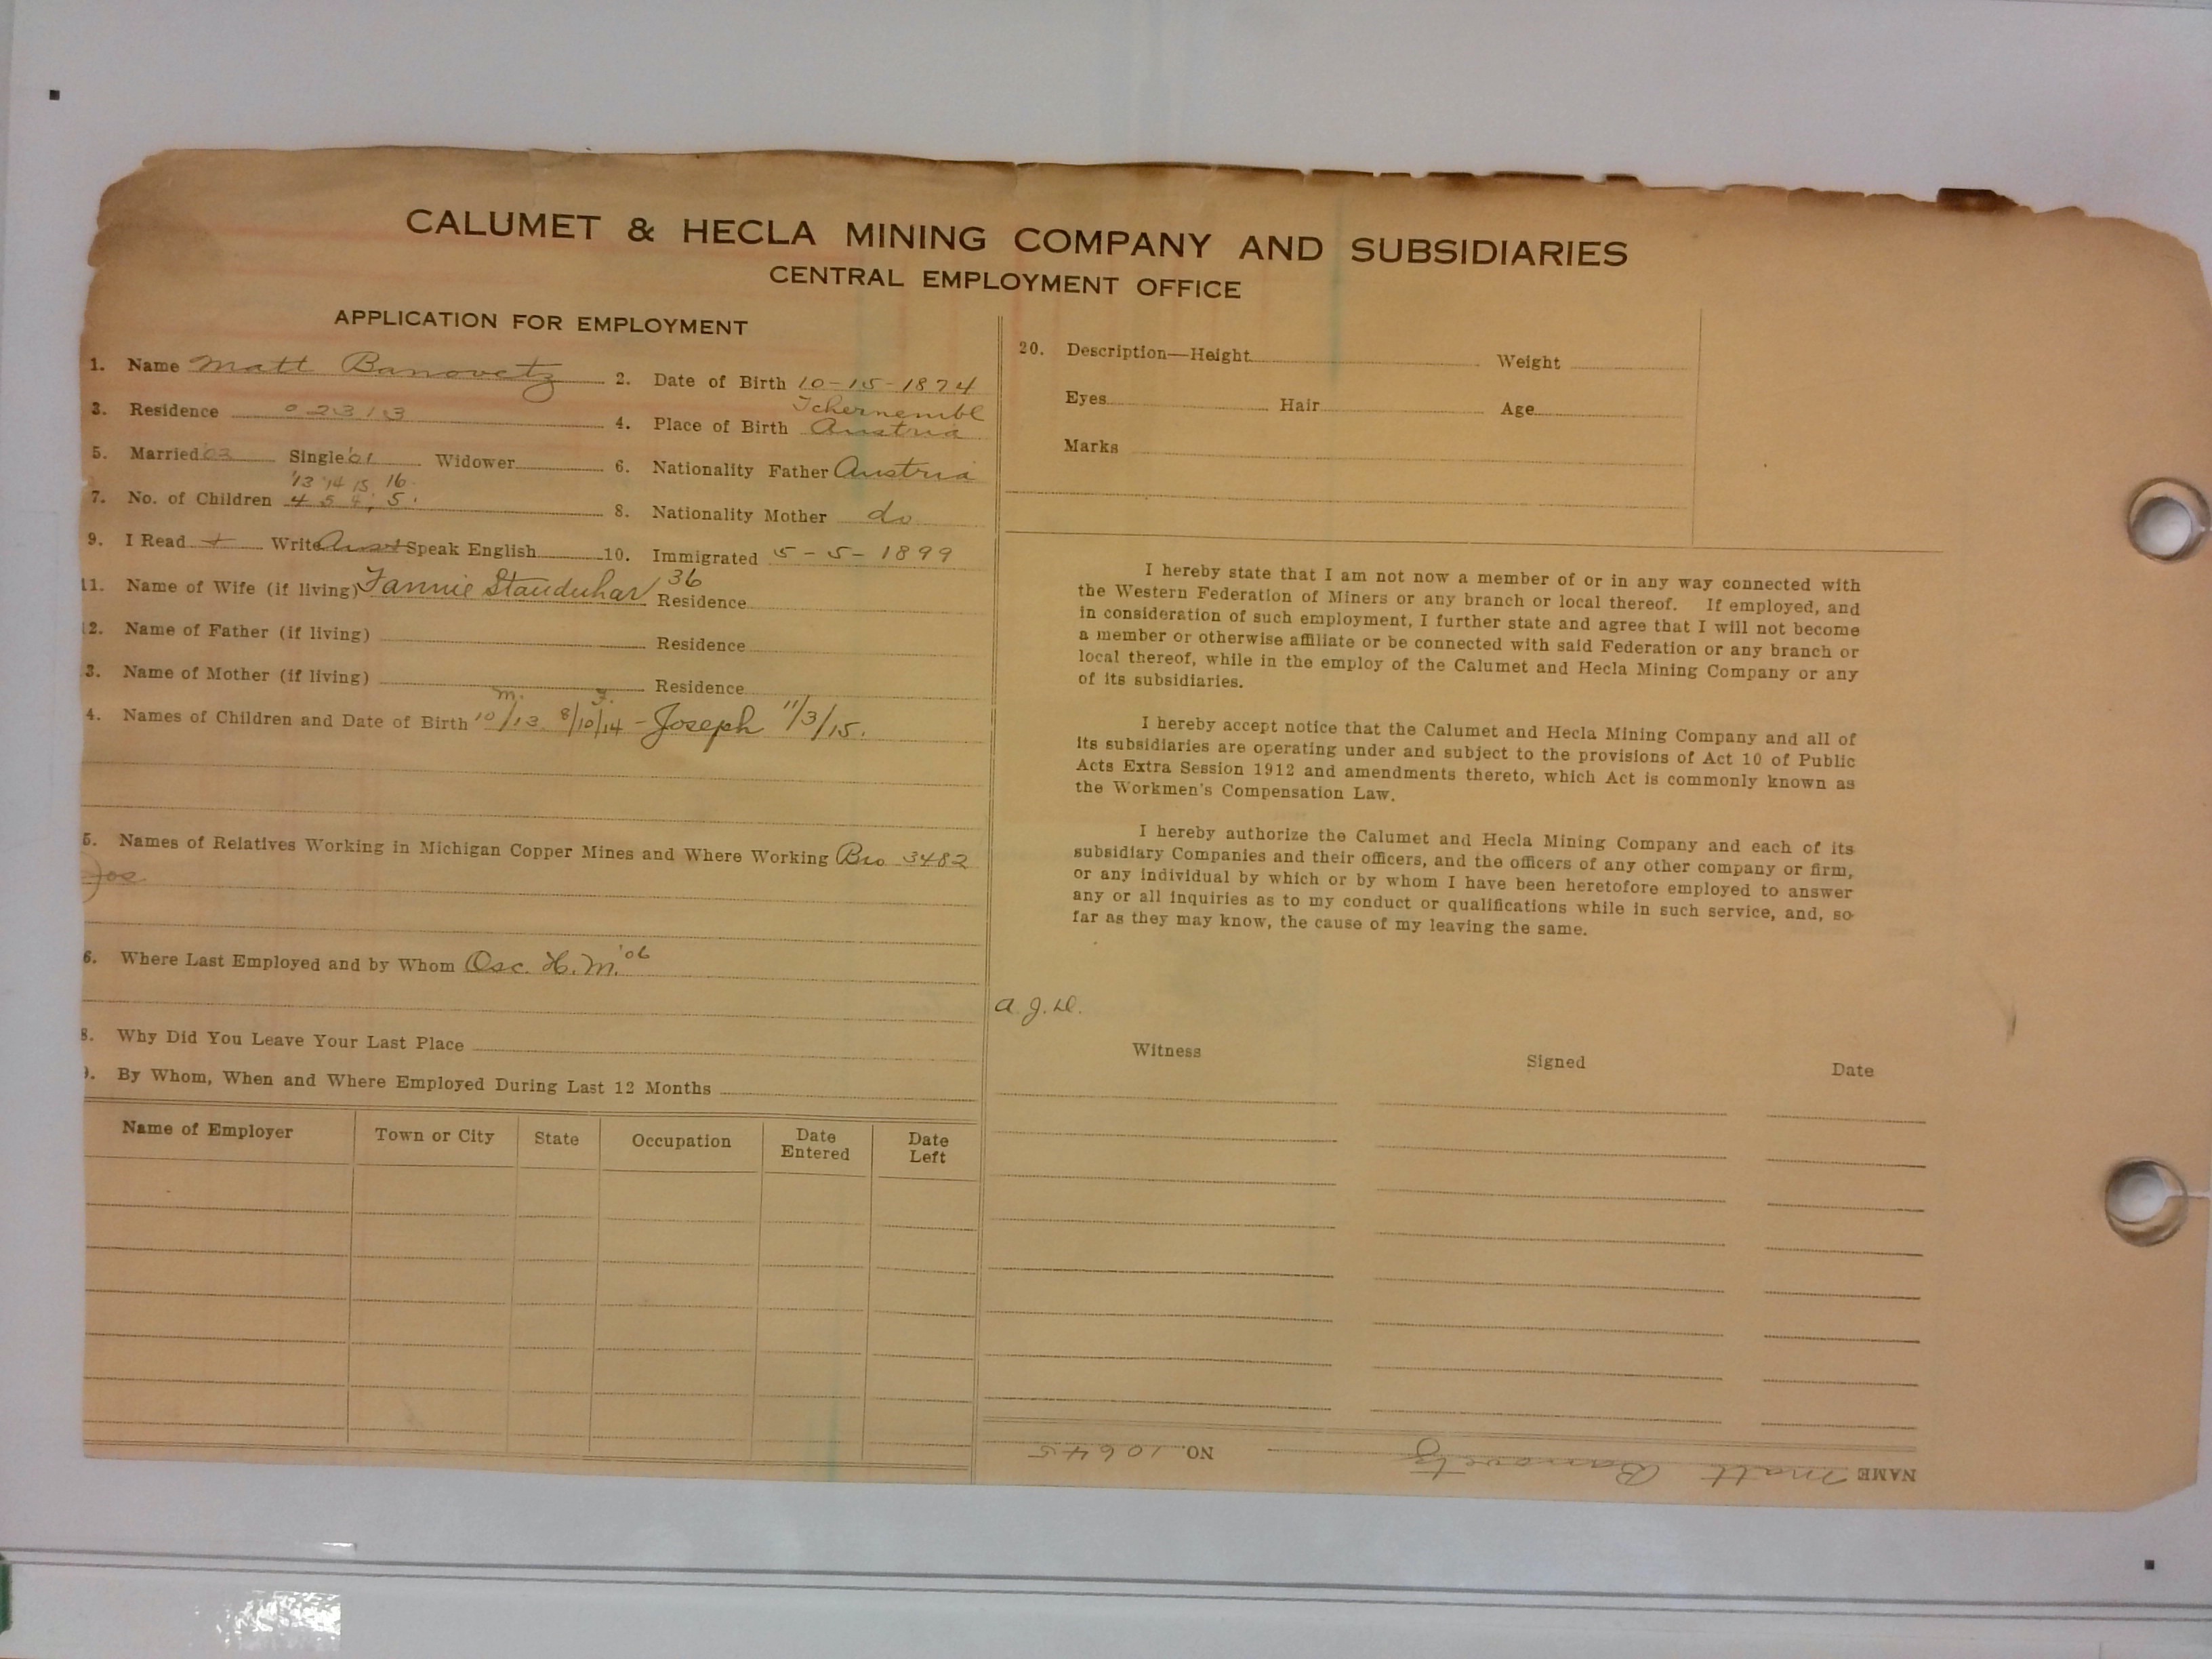 CALUMET & HECLA MINING COMPANY AND SUBSIDIARIES
CENTRAL EMPLOYMENT OFFICE
APPLICATION FOR EMPLOYMENT
1. Name Matt Banovetz 2. Date of Birth 10-15-1874
3. Residence 02313 4. Place of Birth Tchernembl Austria
5. Married 03 Single '01 Widower 6. Nationality Father Austria
'13 '14 15 16
7. No. of Children 4 5 4, 5. 8. Nationality Mother do
9. I Read + Write Aust Speak English 10. Immigrated 5-5-1899
11. Name of Wife (if living) Fannie Stauduhar 36 Residence
12. Name of Father (if living) Residence
3. Name of Mother (if living) Residence
m. F.
4. Names of Children and Date of Birth 10/13 8/10/14 - Joseph 11/3/15.
5. Names of Relatives Working in Michigan Copper Mines and Where Working Bro 3482
Joe
6. Where Last Employed and by Whom Osc. H.M. '06
8. Why Did You Leave Your Last Place
9. By Whom, When and Where Employed During Last 12 Months
Name of Employer Town or City State Occupation Date Entered Date Left
20. Description—Height Weight
Eyes Hair Age
Marks
I hereby state that I am not now a member of or in any way connected with
the Western Federation of Miners or any branch or local thereof. If employed, and
in consideration of such employment, I further state and agree that I will not become
a member or otherwise affiliate or be connected with said Federation or any branch or
local thereof, while in the employ of the Calumet and Hecla Mining Company or any
of its subsidiaries.
I hereby accept notice that the Calumet and Hecla Mining Company and all of
its subsidiaries are operating under and subject to the provisions of Act 10 of Public
Acts Extra Session 1912 and amendments thereto, which Act is commonly known as
the Workmen's Compensation Law.
I hereby authorize the Calumet and Hecla Mining Company and each of its
subsidiary Companies and their officers, and the officers of any other company or firm,
or any individual by which or by whom I have been heretofore employed to answer
any or all inquiries as to my conduct or qualifications while in such service, and, so
far as they may know, the cause of my leaving the same.
Witness Signed Date
NAME Matt Banovetz NO. 10645